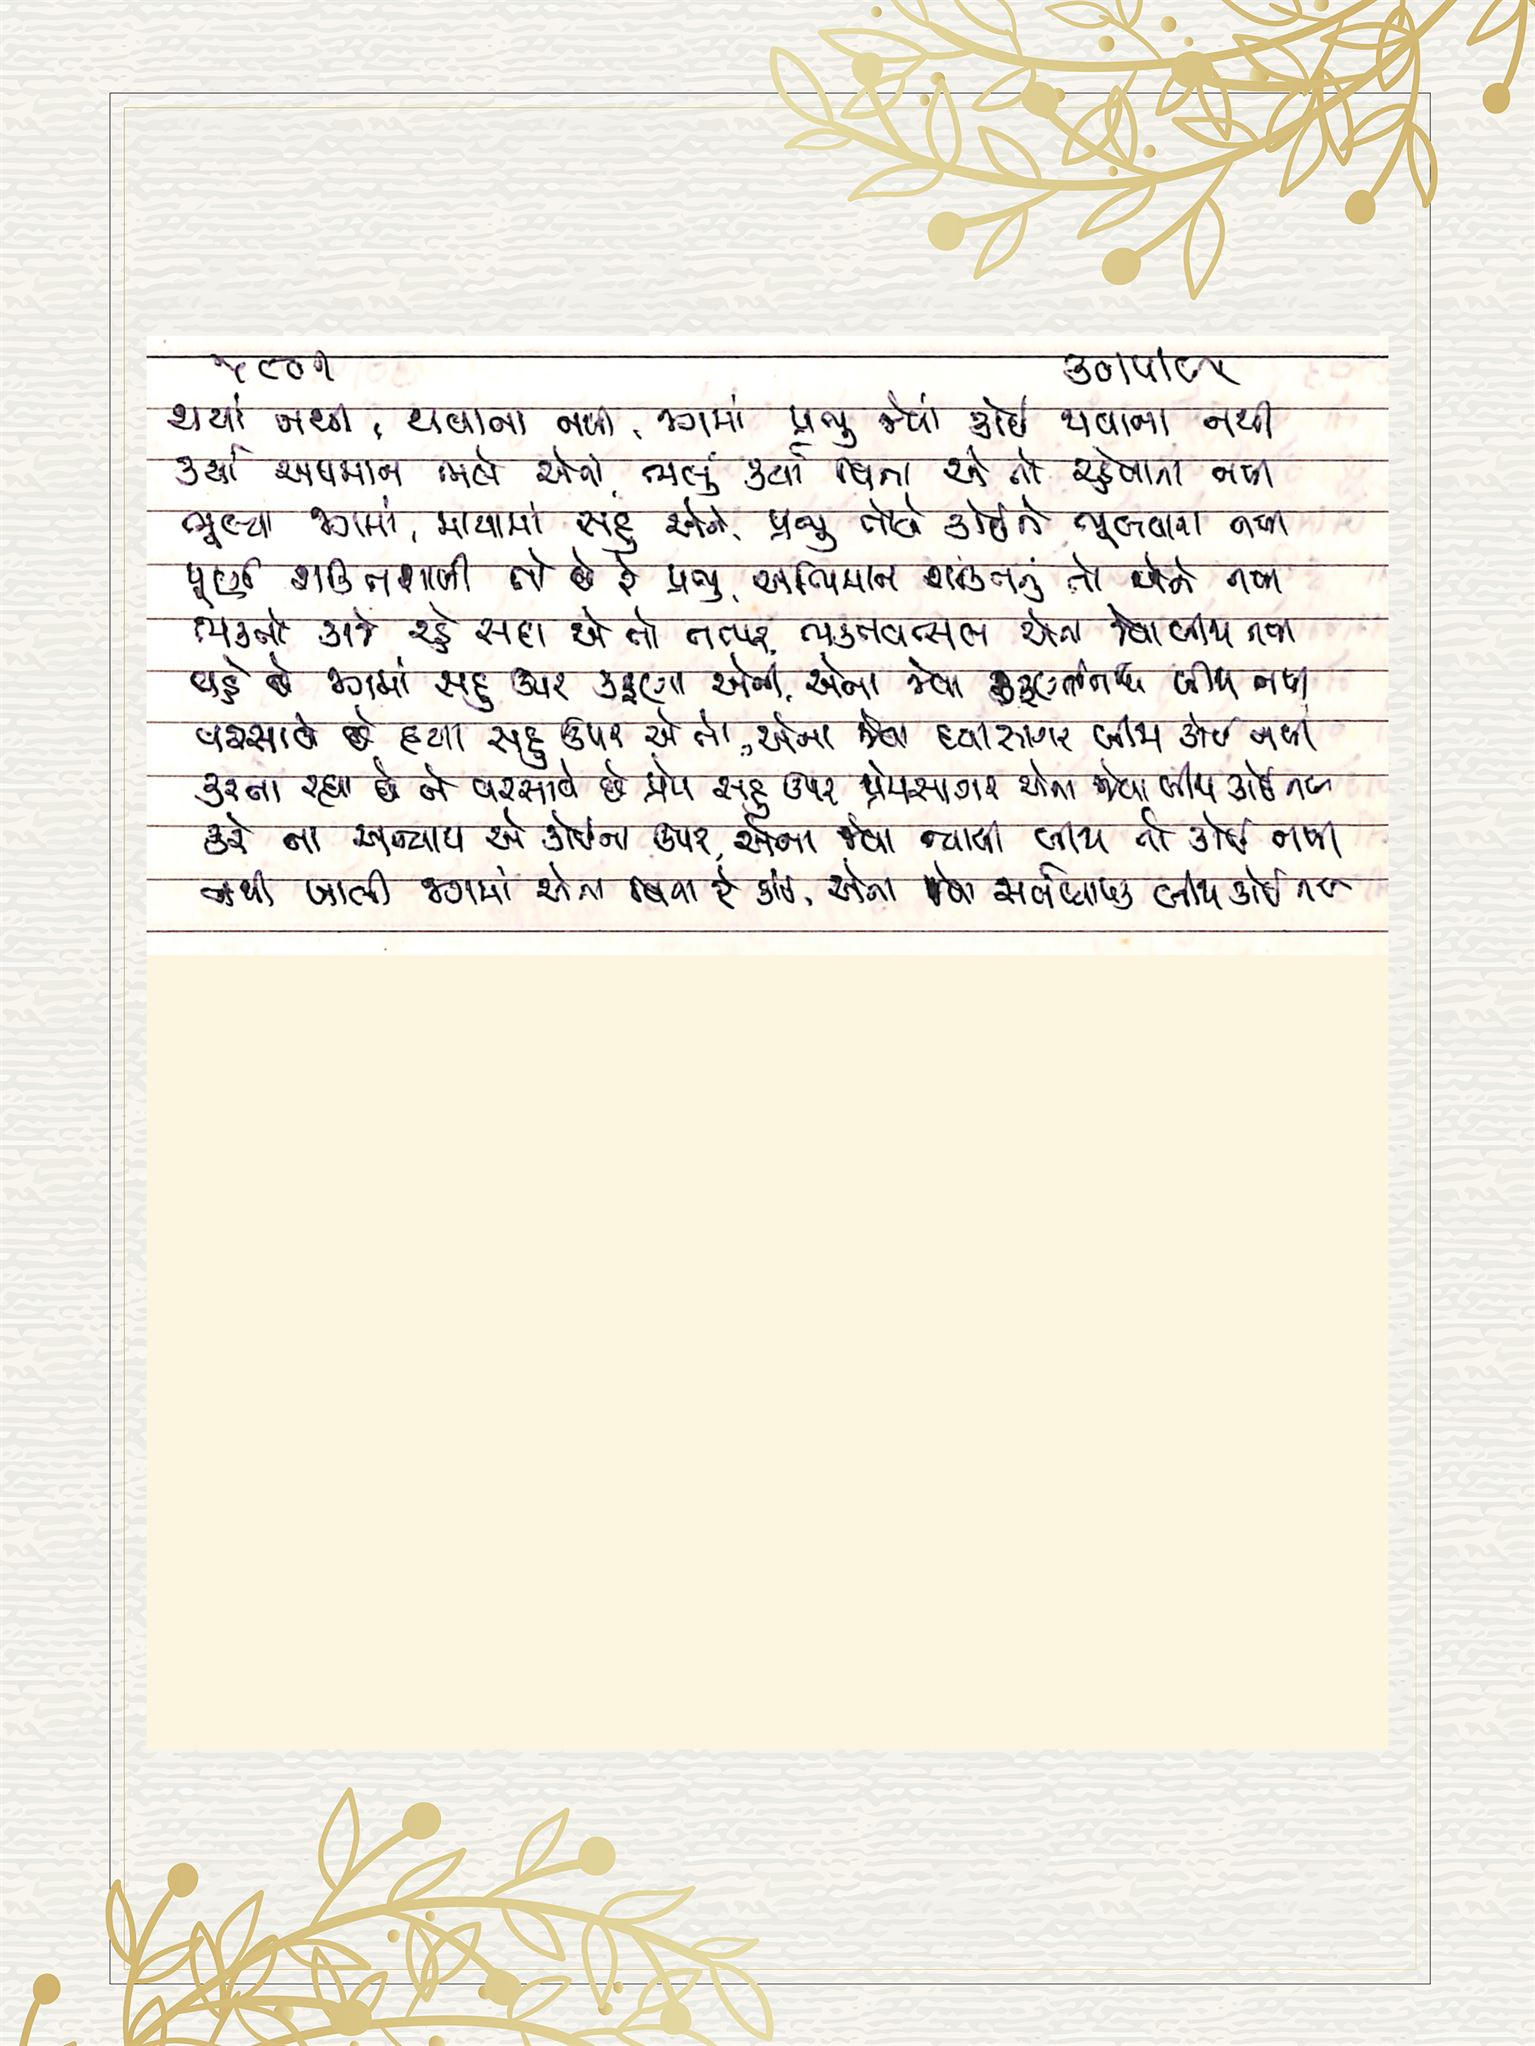 ૫૮૦૧
થયાં નથી, થવાના નથી, જગમાં પ્રભુ જેવાં કોઈ થવાના નથી
કર્યા અપમાન ભલે એને, ભલું કર્યા વિના એ તો રહેવાના નથી
ભૂલ્યા જગમાં, માયામાં સહુ એને, પ્રભુ તોયે કોઈને ભૂલવાના નથી
પૂર્ણ શક્તિશાળી તો છે રે પ્રભુ, અભિમાન શક્તિનું તો એને નથી
ભક્તનો કાજે રહે સદા એ તો તત્પર, ભક્તવત્સલ એના જેવા બીજા નથી
વહે છે જગમાં સહુ ઉપર કરૂણા એની, એના જેવા કરૂણાનિધિ બીજા નથી
વરસાવે છે દયા સહુ ઉપર એ તો, એના જેવા દયાસાગર બીજા કોઈ નથી
કરતા રહ્યા છે ને વરસાવે છે પ્રેમ સહુ ઉપર પ્રેમસાગર એના જેવા બીજા કોઈ નથી
કરે ના અન્યાય એ કોઈના ઉપર, એના જેવા ન્યાયી બીજા તો કોઈ નથી
નથી ખાલી જગમાં એના વિના રે કાંઈ, એના જેવા સર્વવ્યાપક બીજા કોઈ નથી